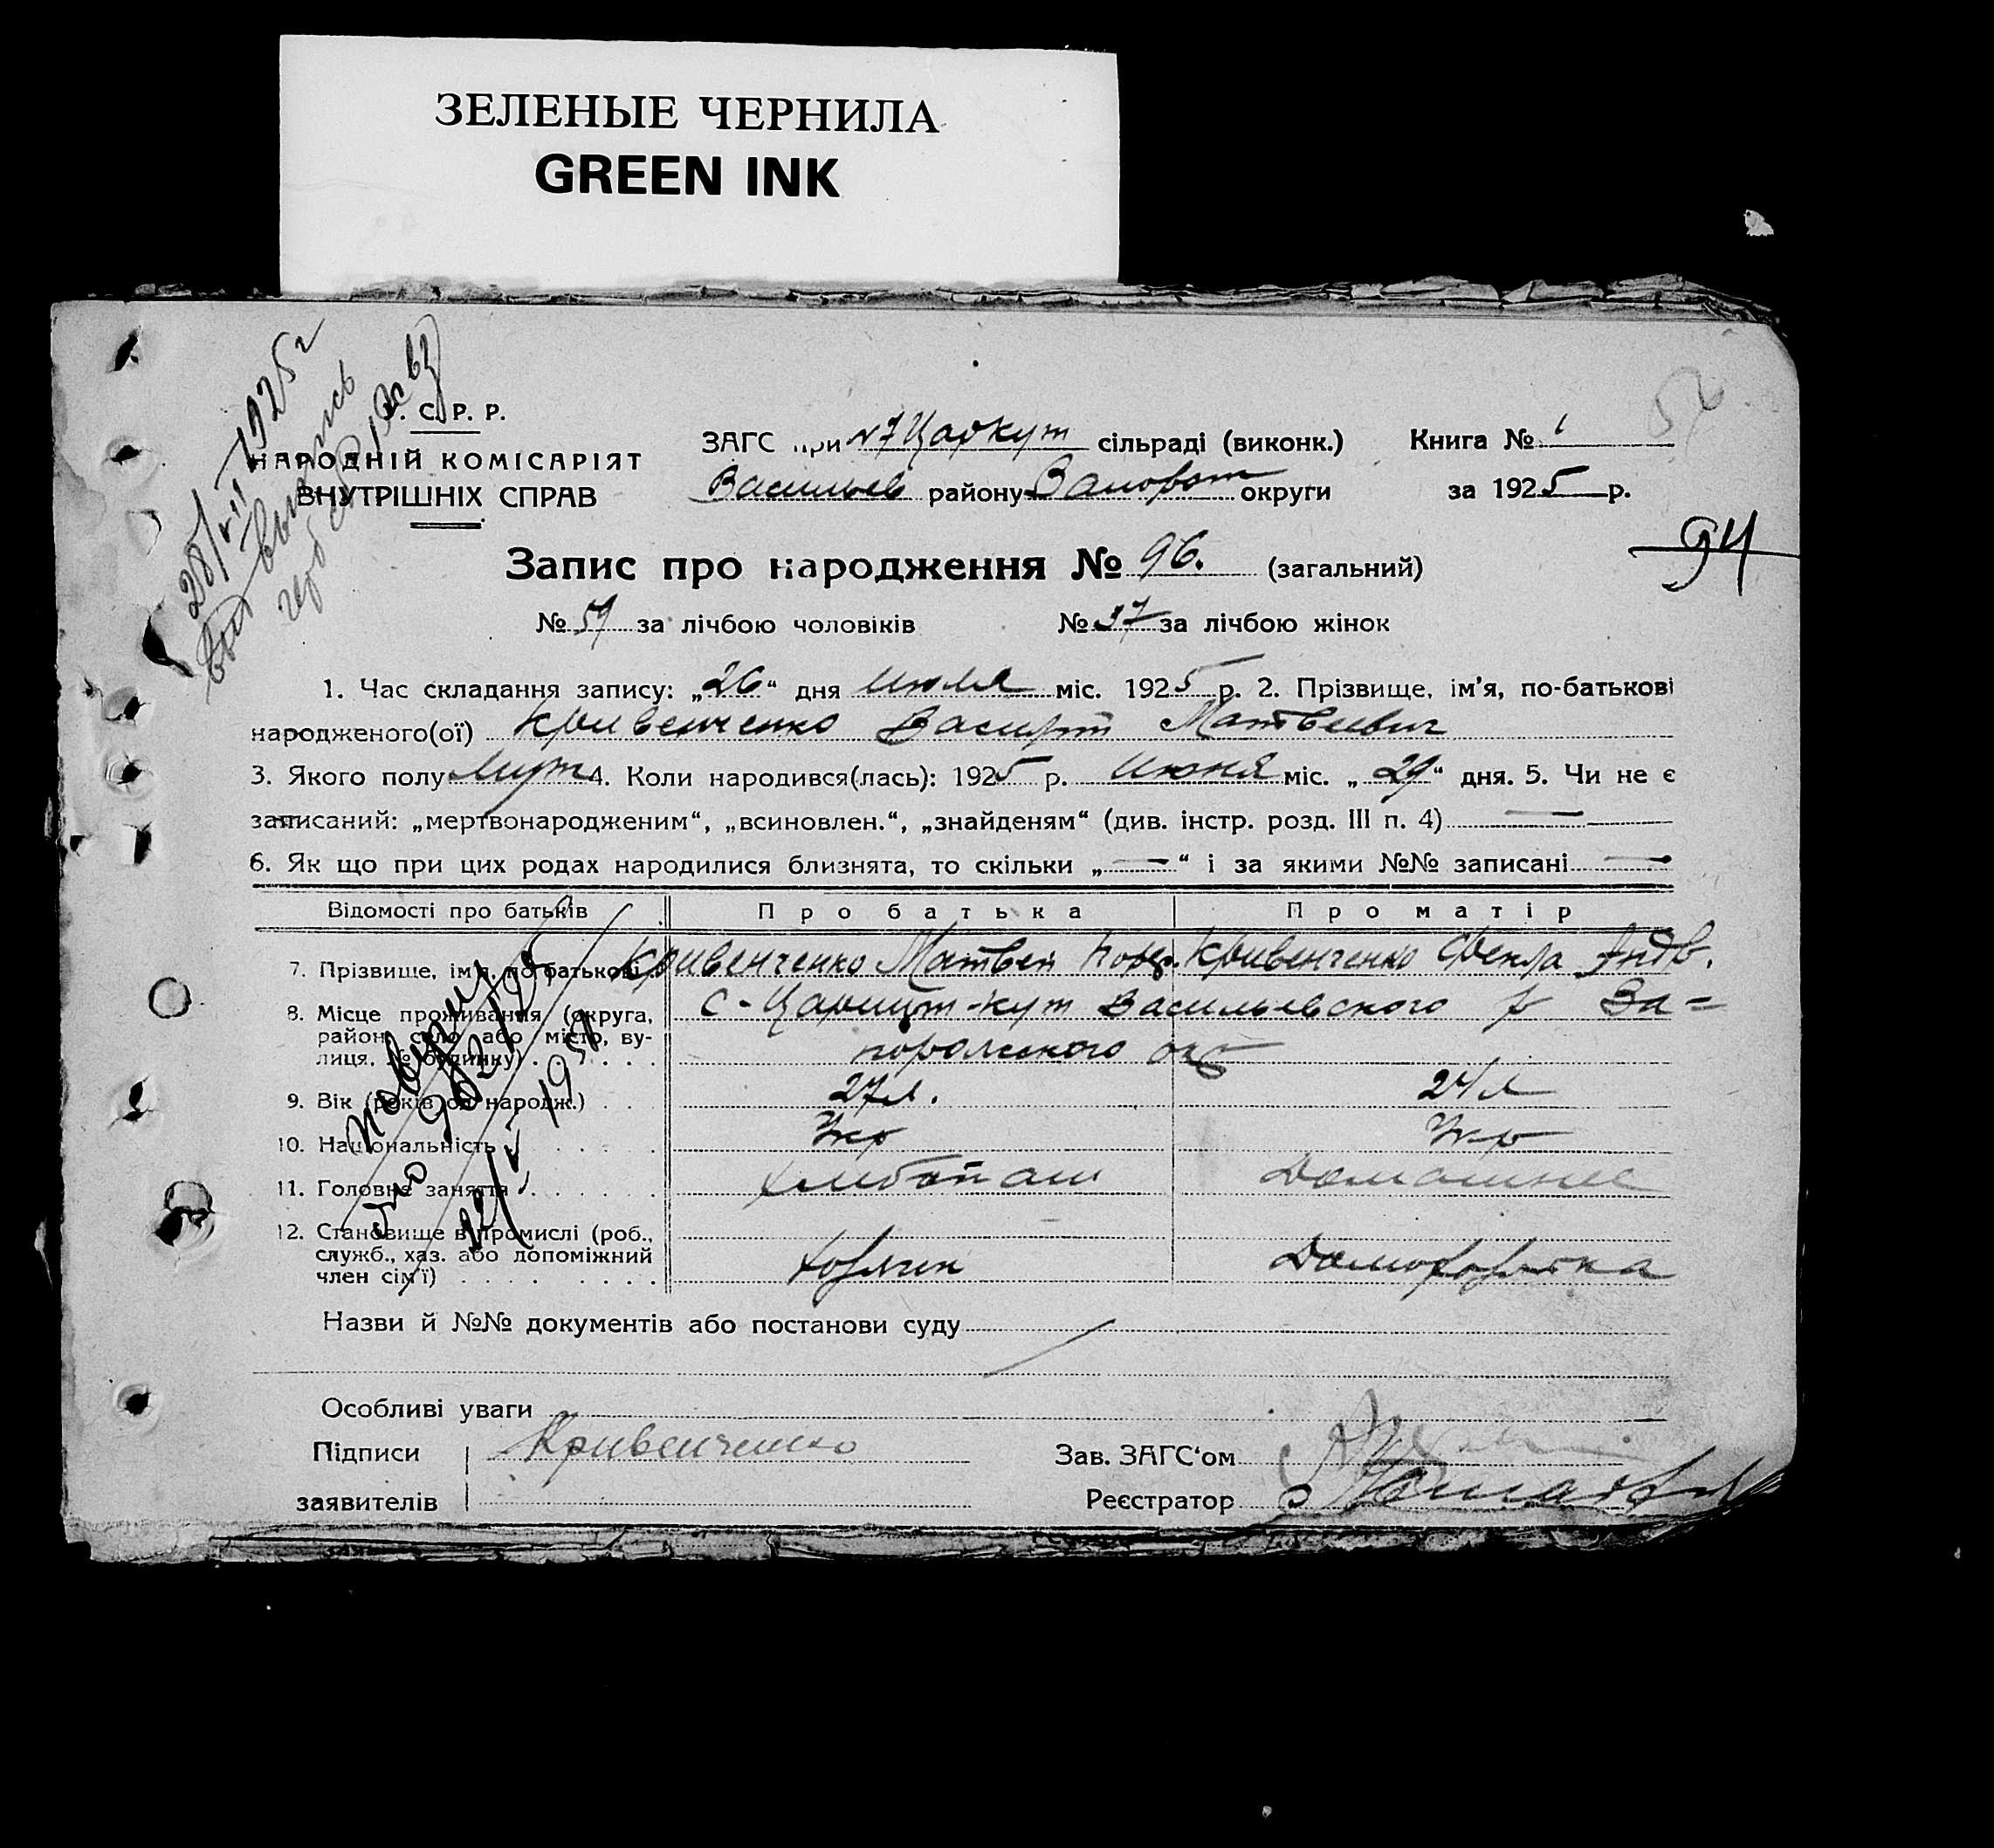 ЗЕЛЕНЫЕ ЧЕРНИЛА
GREEN INK
. С. Р. Р.
НАРОДНІЙ КОМІСАРІЯТ
ВНУТРІШНІХ СПРАВ
ЗАГС при №7 Царкут сільраді (виконк.) Книга № 1
Васильев району Запорож округи за 1925 р.
1925 г
выпись
94
Запис про народження № 96. (загальний)
№ 59 за лічбою чоловіків № 37 за лічбою жінок
1. Час складання запису: „26“ дня Июля міс. 1925 р. 2. Прізвище, ім’я, по-батькові
народженого(ої) Кривенченко Матвеевич
3. Якого полу Муж 4. Коли народився(лась): 1925 р. Июня міс. „29“ дня. 5. Чи не є
записаний: „мертвонародженим“, „всиновлен.“, „знайденям“ (див. інстр. розд. III п. 4) —
6. Як що при цих родах народилися близнята, то скільки „—“ і за якими №№ записані —
Відомості про батьків Про батька Про матір
7. Прізвище, ім’я, по батькові Кривенченко Матвей Кривенченко Фекла Андр.
8. Місце проживання (округа, с-Царицын-кут Васильевского р За=
район, село або місто, ву-
лиця, № будинку) . . . . порожского окр
9. Вік (років од народж.) . . 27 л. 24 л
10. Національність . . . . . Укр Укр
11. Головне заняття . . . . . хлебопаш Домашнее
12. Становище в промислі (роб.,
служб., хаз. або допоміжний
член сім’ї) . . . . . . . . . Хозяин Домохозяйка
1951
Назви й №№ документів або постанови суду
Особливі уваги
Підписи Кривенченко Зав. ЗАГС‘ом
заявителів Реєстратор